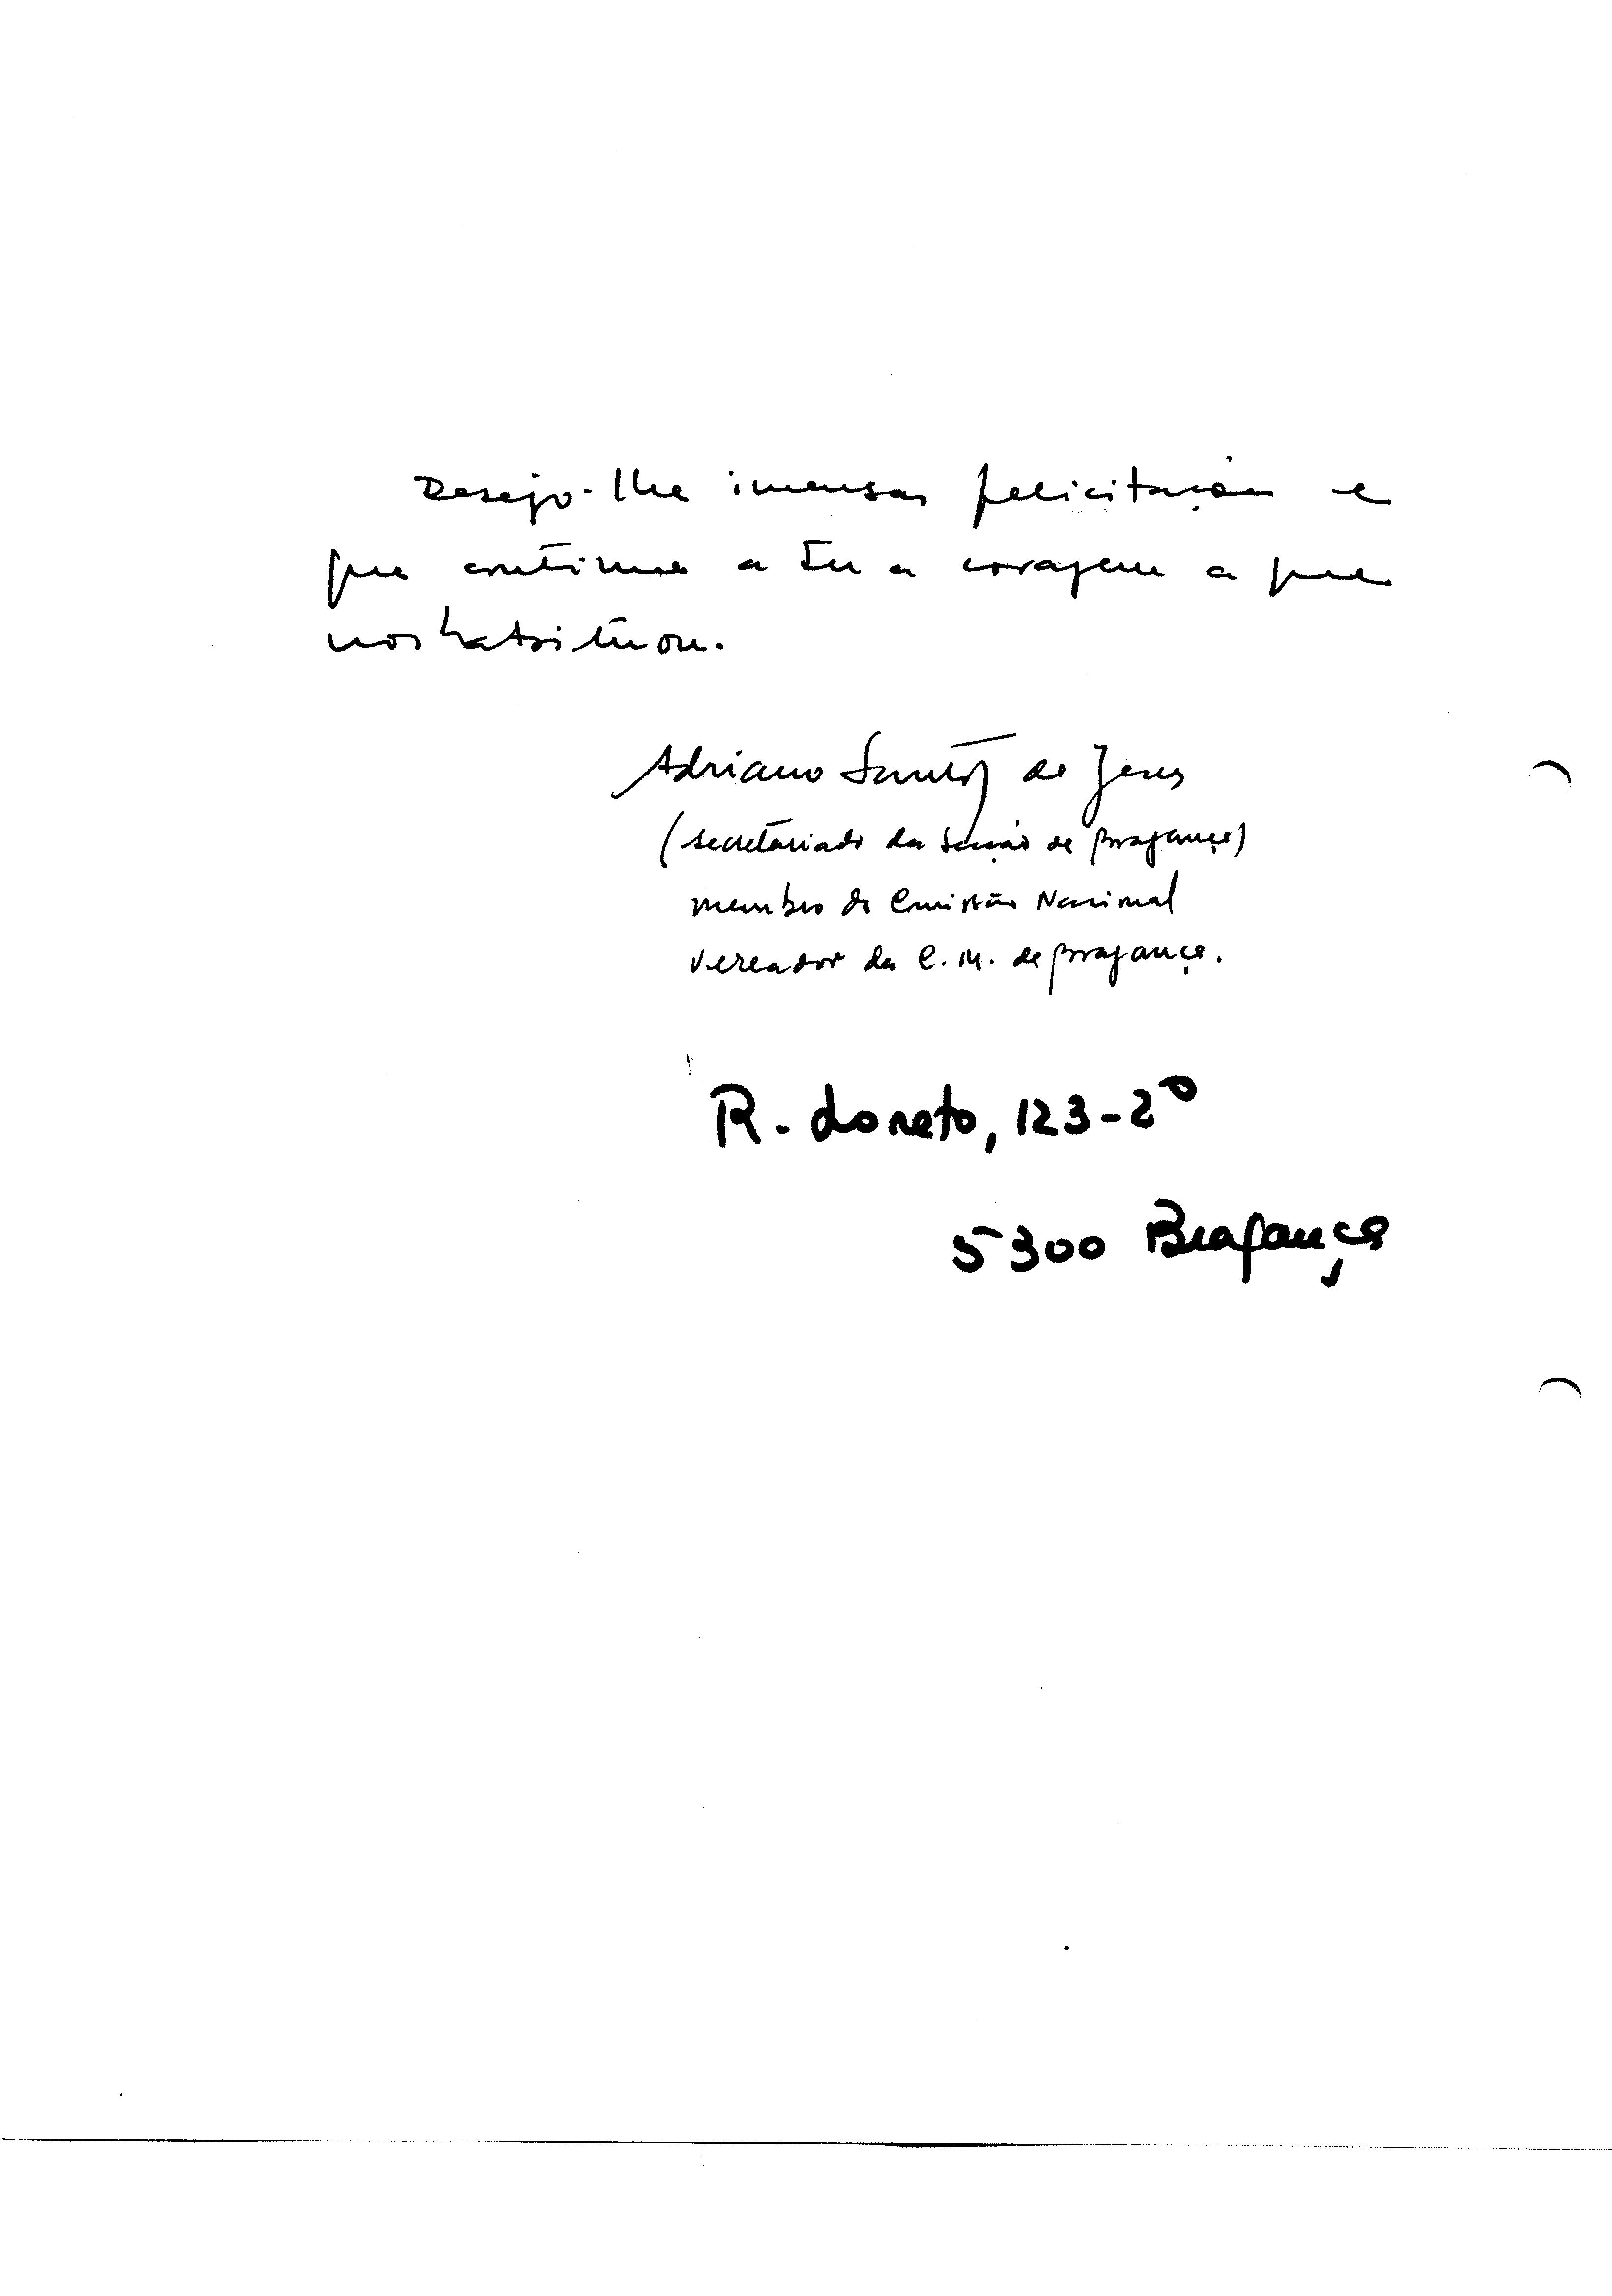 Desejo-lhe imensas felicitações e
que continue a tua coragem a que
nos habituou.
Adriano Santos de Jesus
(secretariado da Secção de Bragança)
membro da Comissão Nacional
vereador da C. M. de Bragança.
R. Loreto, 123-2º
5300 Bragança